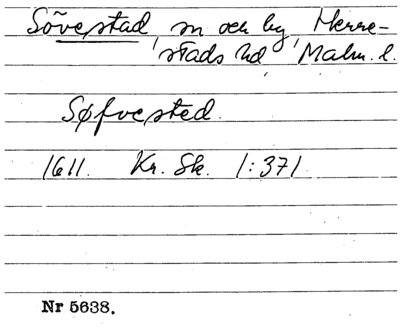 Sövestad, sn och by, Herre-
stads hd, Malm. l.
Søfvested.
1611. Kr. Sk. 1:371
Nr 5638.